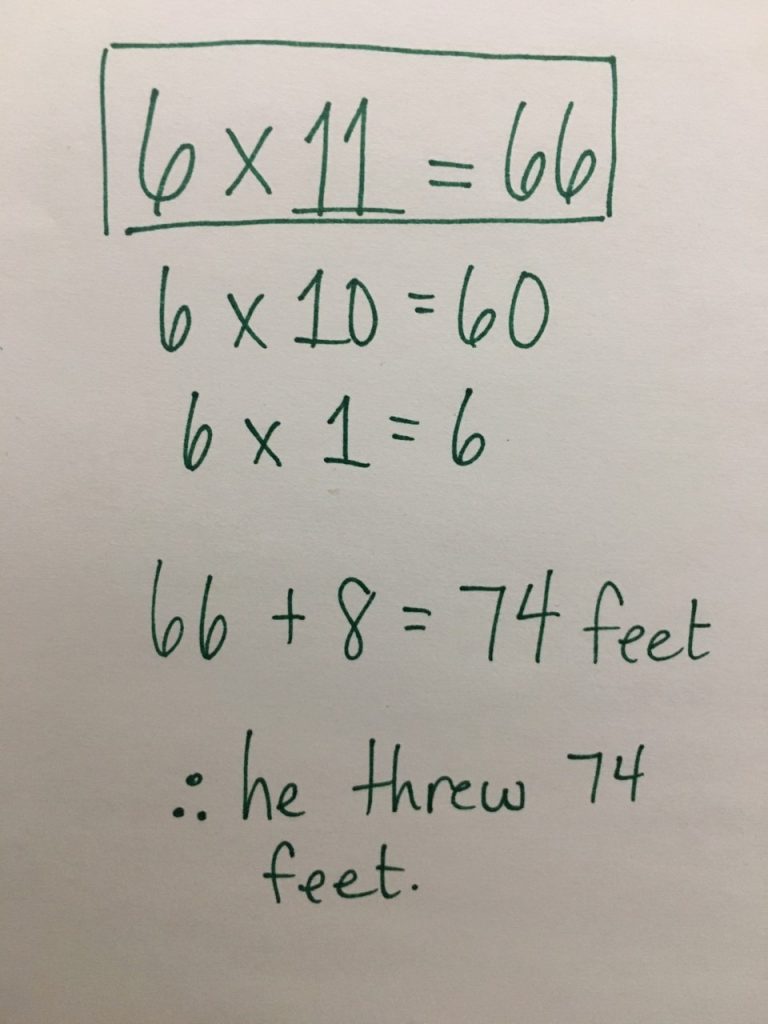 6 x 11 = 66
6 x 10 = 60
6 x 1 = 6
66 + 8 = 74 feet
∴ he threw 74
feet.